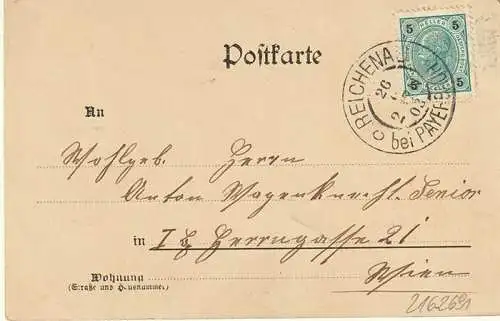 Postkarte
5 HELLER 5
5 5
REICHENAU bei PAYERBACH
26
2 03
C
An
Wohlgeb. Herrn
Anton Wagenknecht. Senior
in I Herrngasse 21
Wien
Wohnung
(Straße und Hausnummer)
2162691